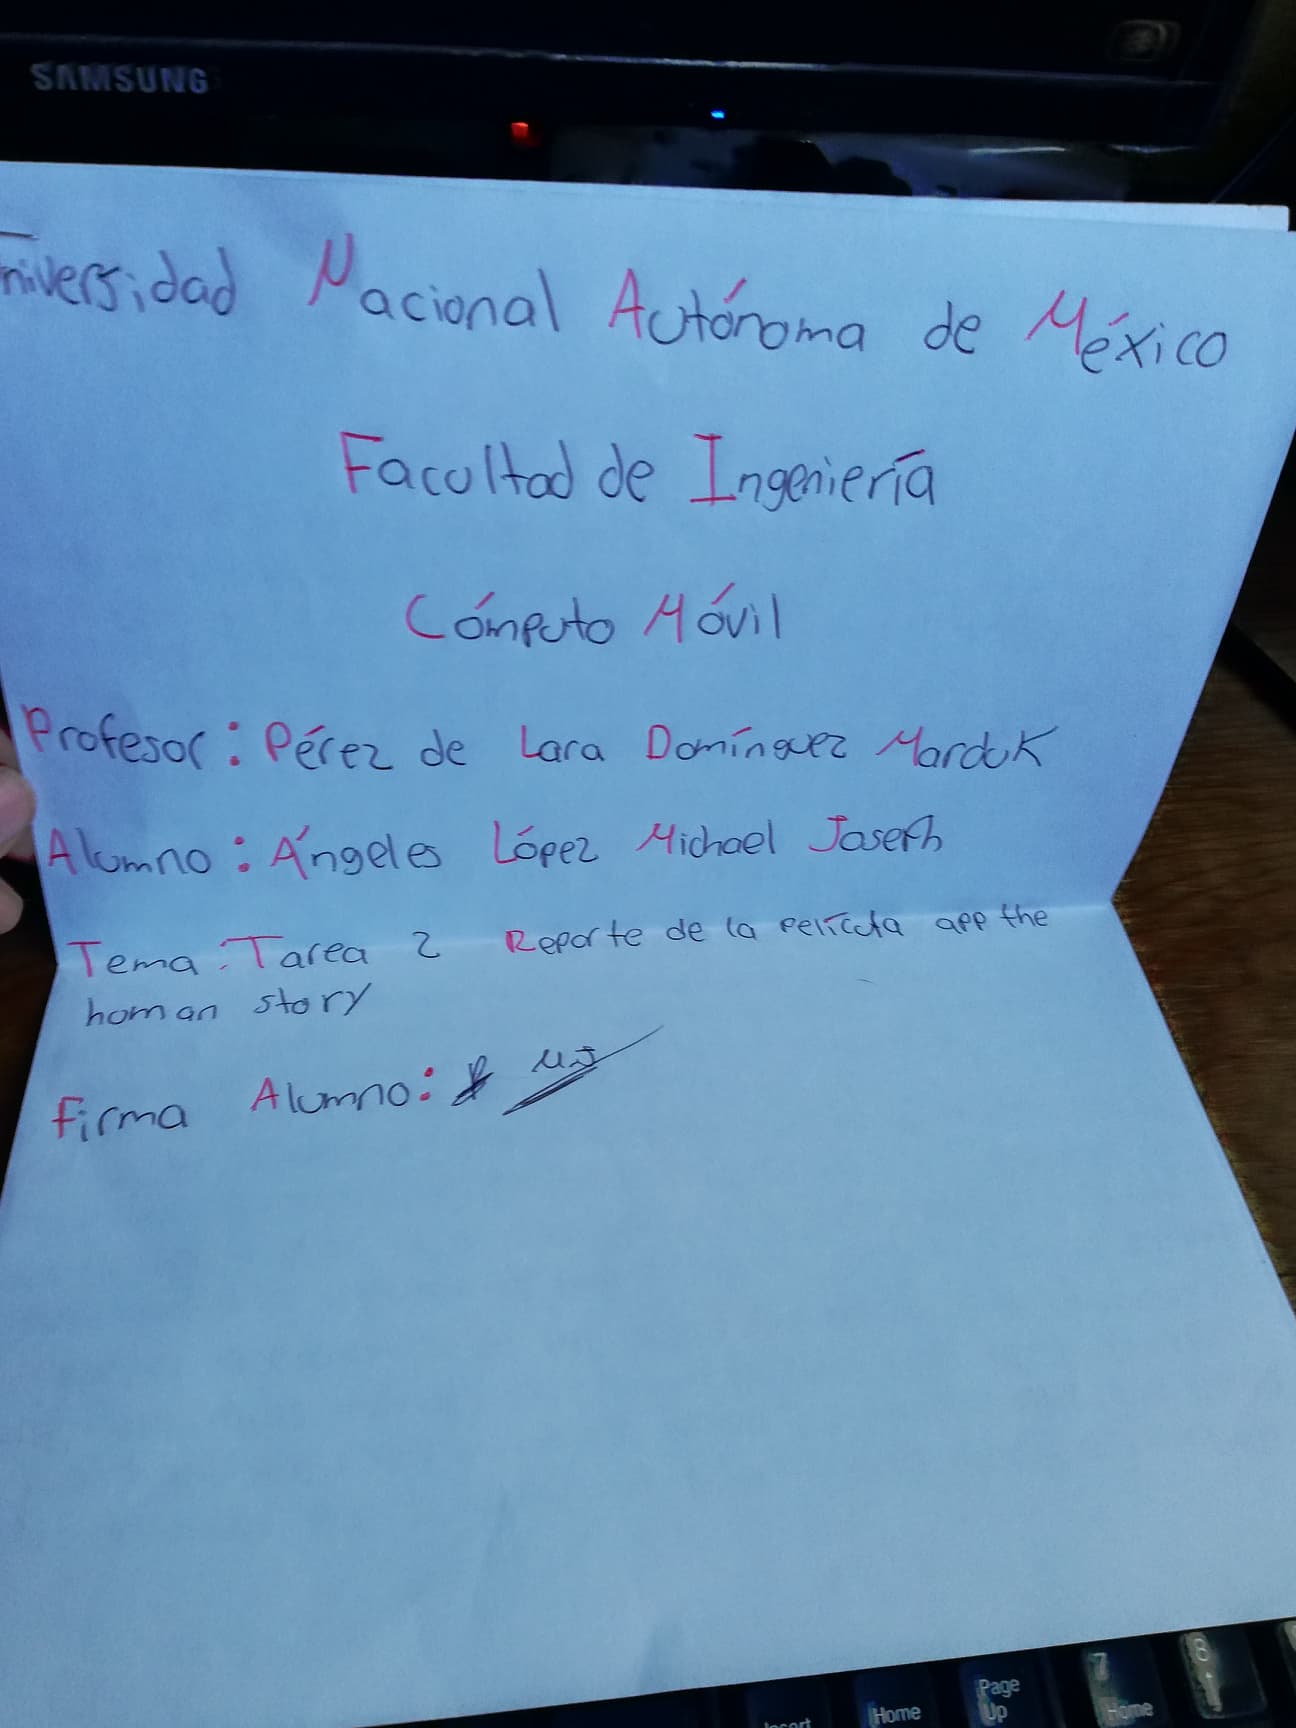 SAMSUNG
niversidad Nacional Autónoma de México
Facultad de Ingeniería
Cómputo Móvil
Profesor: Pérez de Lara Domínguez Marduk
Alumno: Ángeles López Michael Joseph
Tema: Tarea 2 Reporte de la película app the
human story
Firma Alumno: MJ
Home
Page
Up
7
Home
8